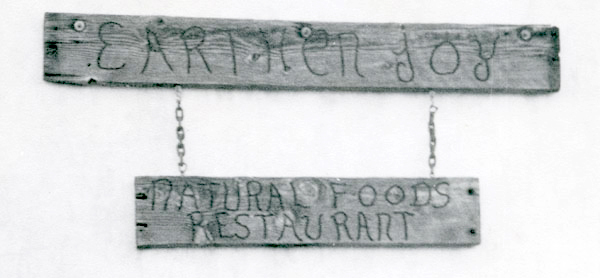 EARTHEN JOY
NATURAL FOODS
RESTAURANT